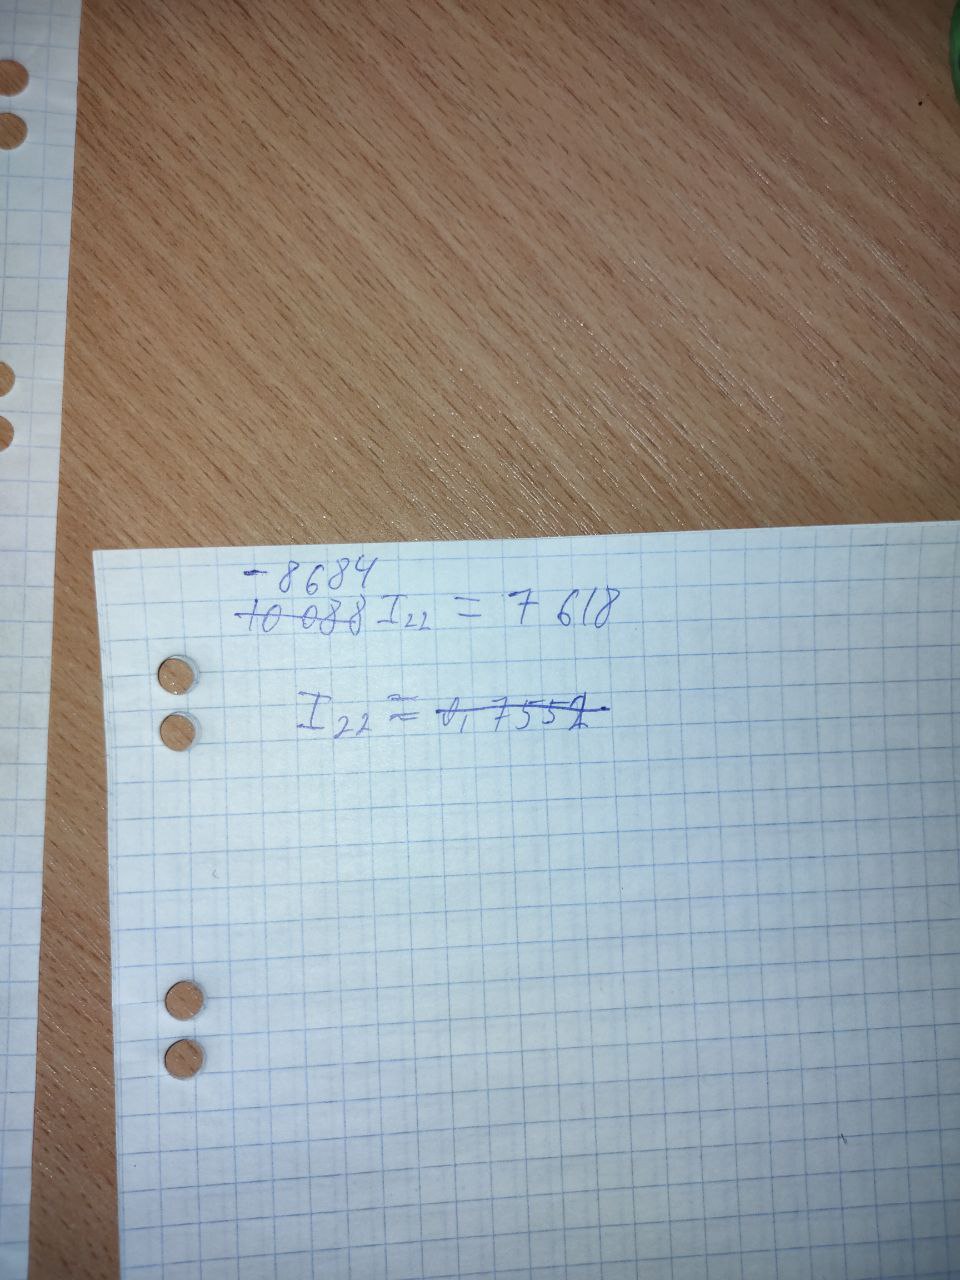 - 8684
10 088 I₂₂ = 7 618
I₂₂ ≈ 0,7552